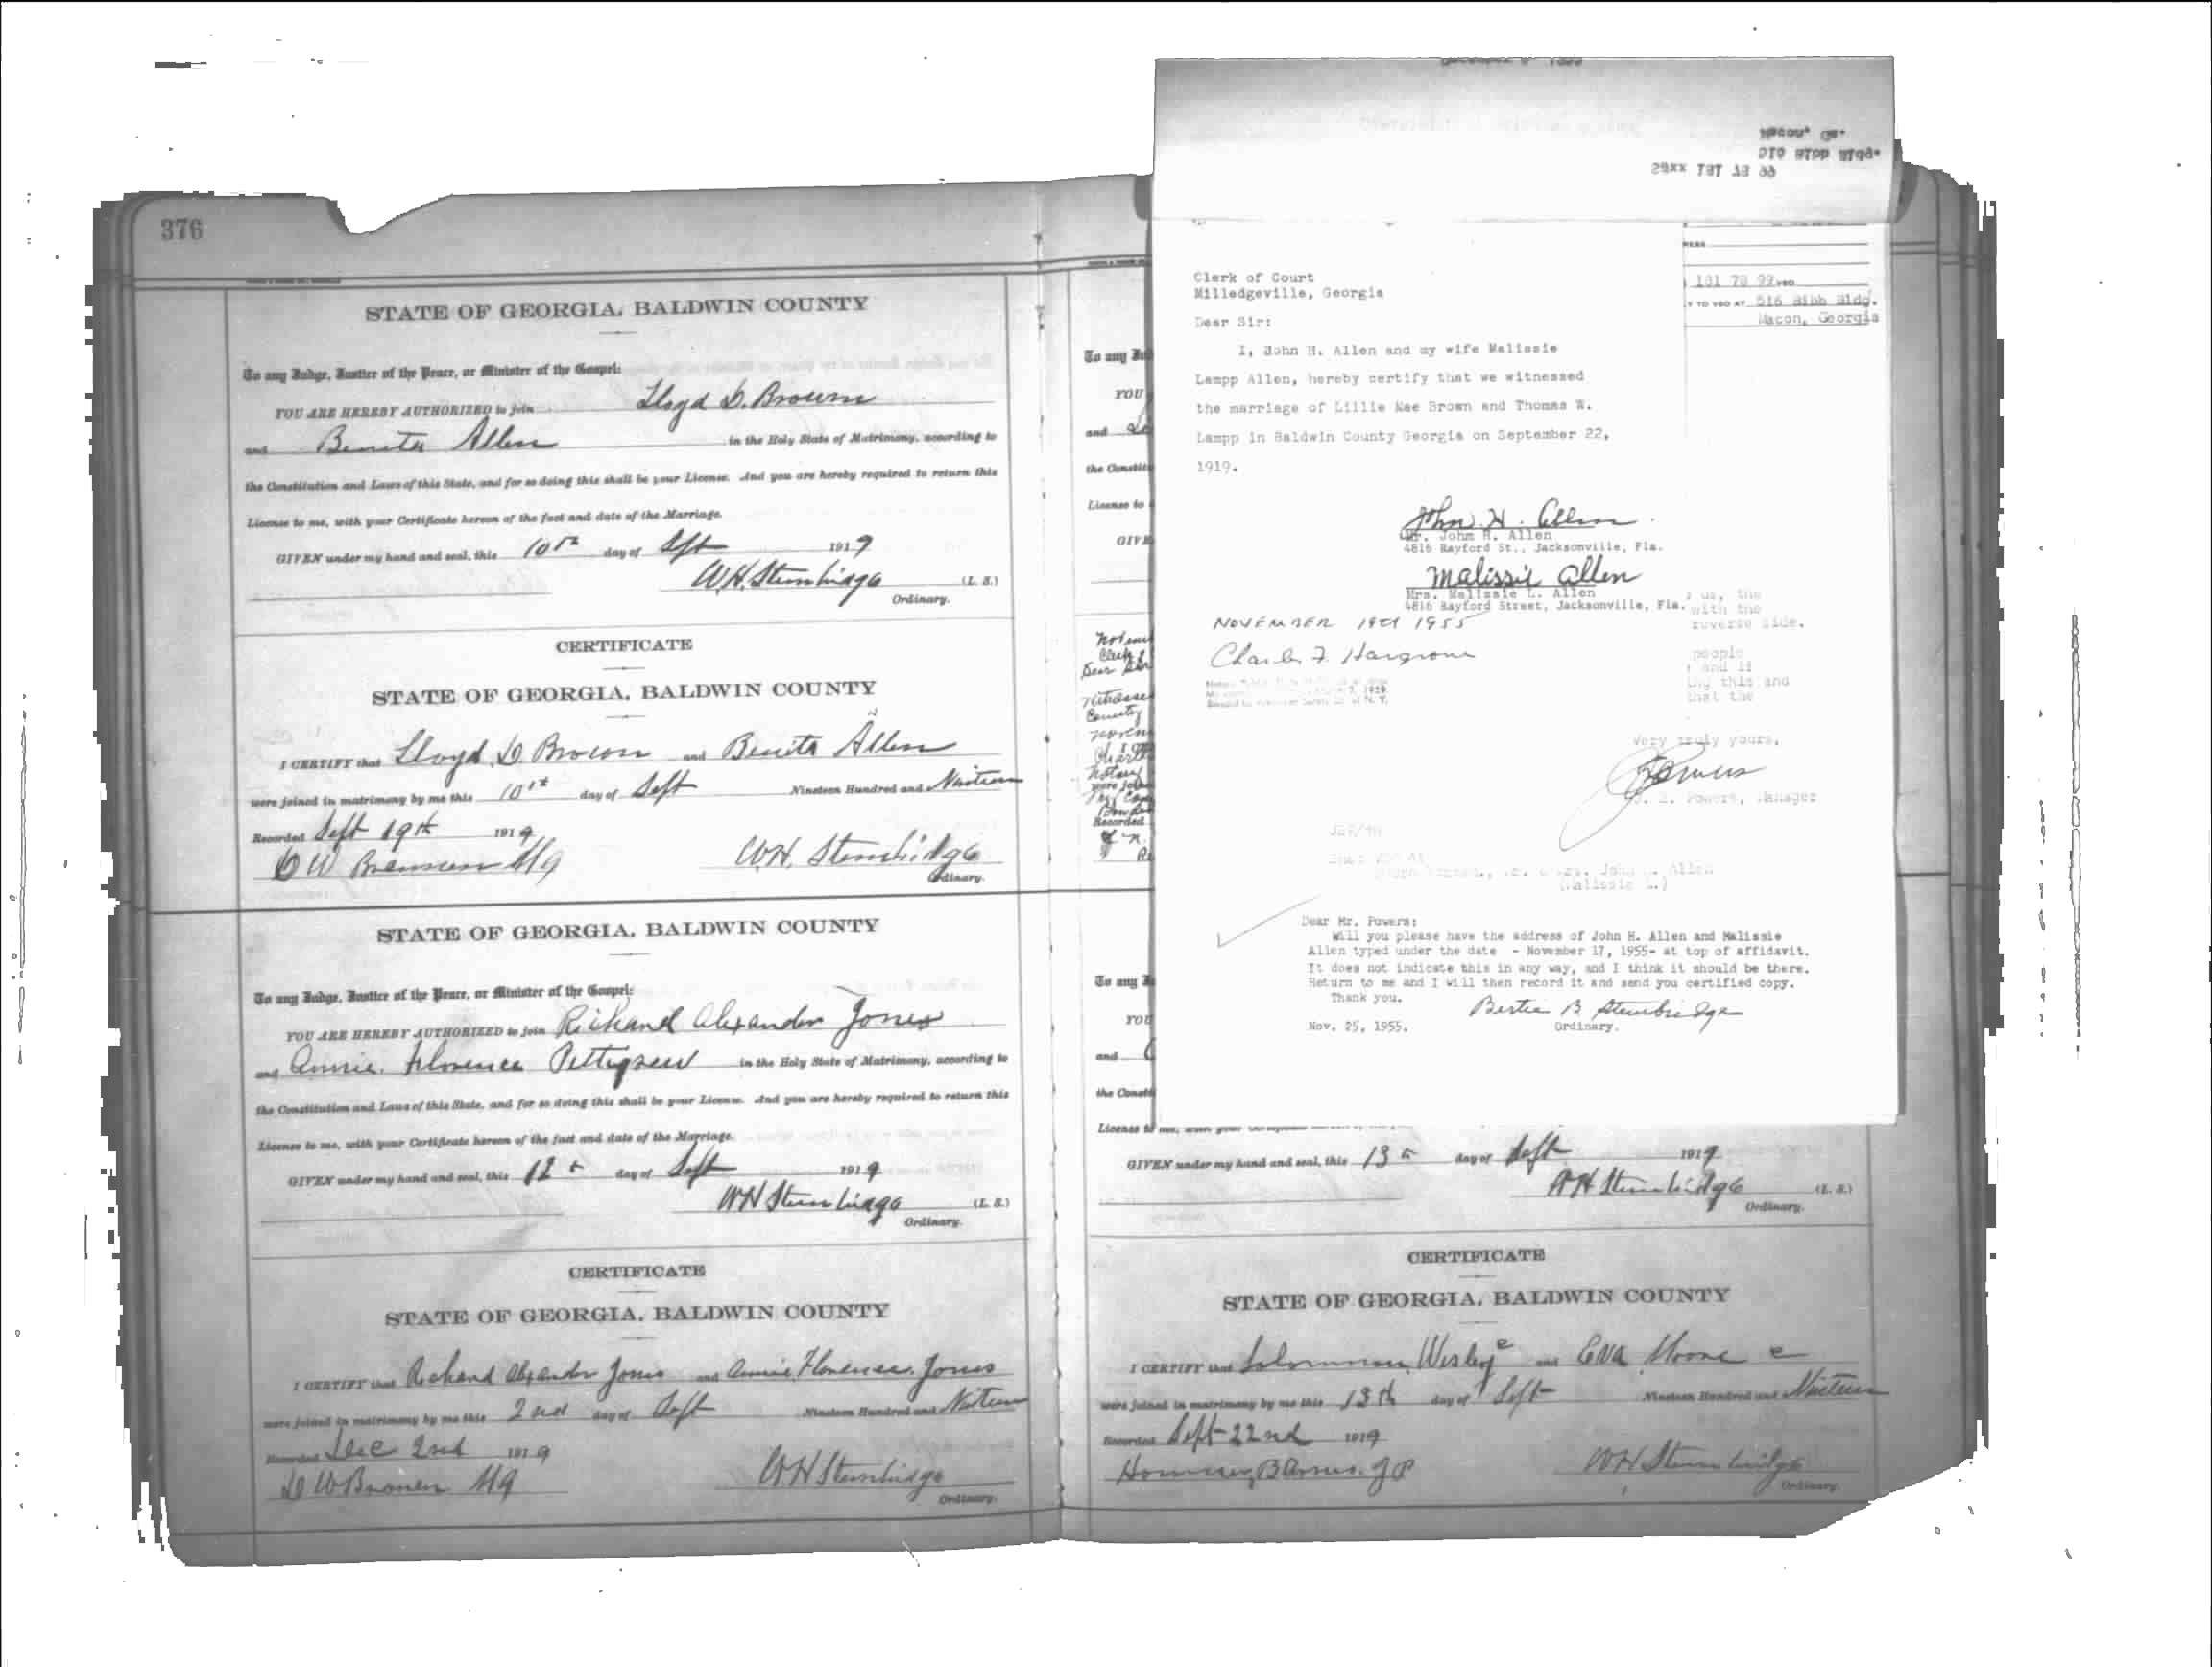 376
STATE OF GEORGIA, BALDWIN COUNTY
To any Judge, Justice of the Peace, or Minister of the Gospel:
YOU ARE HEREBY AUTHORIZED to join Lloyd D. Brown
and Benita Allen in the Holy State of Matrimony, according to
the Constitution and Laws of this State, and for so doing this shall be your License. And you are hereby required to return this
License to me, with your Certificate hereon of the fact and date of the Marriage.
GIVEN under my hand and seal, this 10th day of Sept 1919
W.H. Stembridge (L. S.)
Ordinary.
CERTIFICATE
STATE OF GEORGIA, BALDWIN COUNTY
I CERTIFY that Lloyd D. Brown and Benita Allen
were joined in matrimony by me this 10th day of Sept Nineteen Hundred and Nineteen
Recorded Sept 19th 1919
W.H. Stembridge
Ordinary.
STATE OF GEORGIA, BALDWIN COUNTY
To any Judge, Justice of the Peace, or Minister of the Gospel:
YOU ARE HEREBY AUTHORIZED to join Richard Alexander Jones
and Annie Florence Pettigrew in the Holy State of Matrimony, according to
the Constitution and Laws of this State, and for so doing this shall be your License. And you are hereby required to return this
License to me, with your Certificate hereon of the fact and date of the Marriage.
GIVEN under my hand and seal, this 12th day of Sept 1919
W H Stembridge (L. S.)
Ordinary.
CERTIFICATE
STATE OF GEORGIA, BALDWIN COUNTY
I CERTIFY that Richard Alexander Jones and Annie Florence Jones
were joined in matrimony by me this 2nd day of Sept Nineteen Hundred and Nineteen
Recorded Dec 2nd 1919
W H Stembridge
Ordinary.
Macon, Ga.
516 Bibb Bldg.
Clerk of Court
Milledgeville, Georgia
Dear Sir:
I, John H. Allen and my wife Malissie
Lampp Allen, hereby certify that we witnessed
the marriage of Lillie Mae Brown and Thomas W.
Lampp in Baldwin County Georgia on September 22,
1919.
John H. Allen
Mr. John H. Allen
4816 Rayford St., Jacksonville, Fla.
Malissie Allen
Mrs. Malissie L. Allen
4816 Rayford Street, Jacksonville, Fla.
NOVEMBER 19th 1955
Charles F. Hargrove
181 78 99
Y TO VBO AT 516 Bibb Bldg.
Macon, Georgia
us, the
with the
reverse side.
people
and if
this and
that the
Very truly yours,
Powers, Manager
Dear Mr. Powers:
Will you please have the address of John H. Allen and Malissie
Allen typed under the date - November 17, 1955- at top of affidavit.
It does not indicate this in any way, and I think it should be there.
Return to me and I will then record it and send you certified copy.
Thank you.
Bertie B Stembridge
Nov. 25, 1955. Ordinary.
To any
YOU
and
the Constit
License to
GIVE
Dear Sir
County
Recorded
To any
YOU
and
the Consti
License to me,
GIVEN under my hand and seal, this 13th day of Sept 1919
W H Stembridge (L. S.)
Ordinary.
CERTIFICATE
STATE OF GEORGIA, BALDWIN COUNTY
I CERTIFY that Solomon Wesley c and Eva Moore c
were joined in matrimony by me this 13th day of Sept Nineteen Hundred and Nineteen
Recorded Sept 22nd 1919
W H Stembridge
Ordinary.